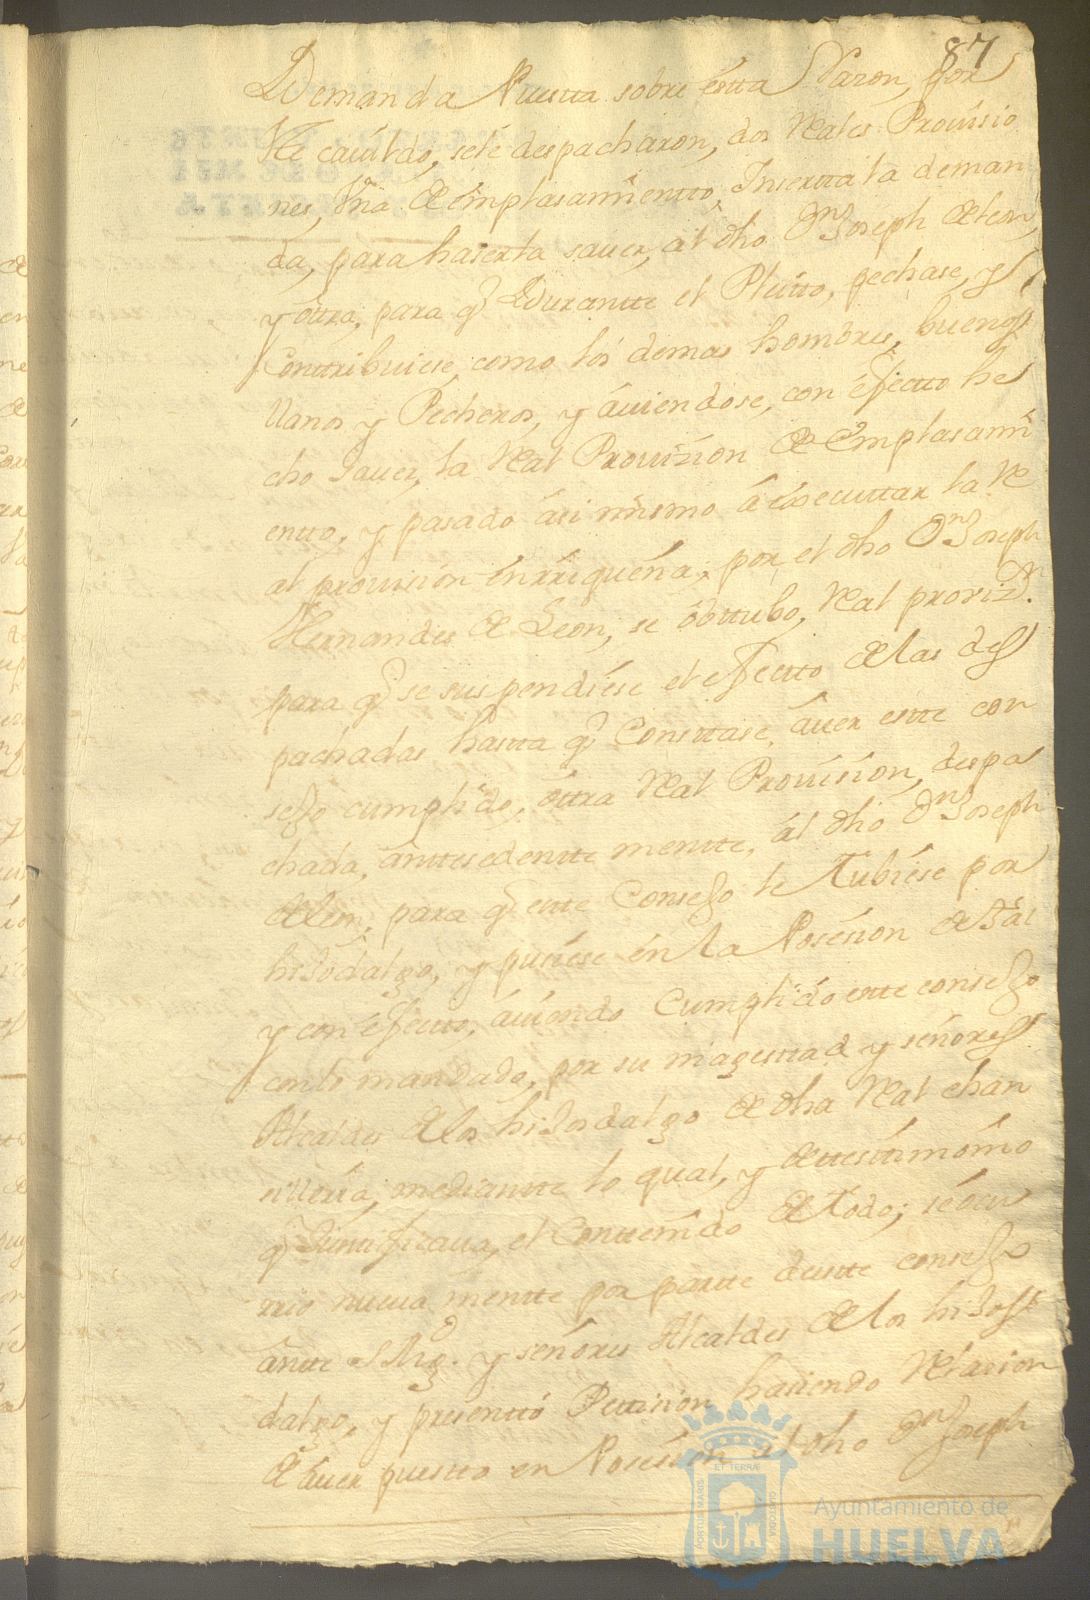 87
Demanda Puestta sobre estta Razon, por
este cavildo, sele despacharon, dos Reales Provisio
nes, Vna de emplasamientto, Inserta la deman
da, para haserla saver, al dho Dn Joseph de leon,
y ottra, para q Durantte el Pleitto, pechase, y
Conttribuiese, como los demas hombres, buenos
llanos y Pecheros, y áviendose, con efectto he
cho saver, la Real Provision de Emplasami
entto, y pasado ási mismo á exsecuttar la Re
al provision énrriqueña, por el dho Dn Joseph
Hernandes de Leon, se obttubo, Real provizn
para q se suspendiese el efectto de las des
pachadas hasta q Consttase, áver estte con
sejo cumplido, óttra Real Provision, despa
chada, anttesedentte mentte, ál dho Dn Joseph
de leon, para q estte Consejo le Tubiese por
hijodalgo, y pusiese én la Posesion de Tál
y con éfectto, áviendo Cumplido estte consejo
con lo mandado, por su magesttad y señores
Alcaldes de los hijosdalgo de dha Real chan
silleria, mediantte lo qual, y de ttesttimonio
q Justtificava, el Conttenido de todo; se ócu
rrio nueva mentte por partte destte consejo
ántte S Mg. y señores Alcaldes de los hijos
dalgo, y presenttó Pettision hasiendo Relasion
de áver puestto en Posesion al dho Dn Joseph
ET TERRAE
PORTUS MARIS
CUSTODIA
Ayuntamiento de
HUELVA